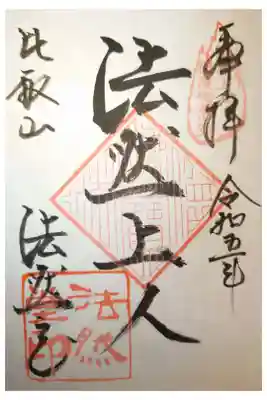 奉拝
令和五年
法然上人
比叡山
法然堂
法然